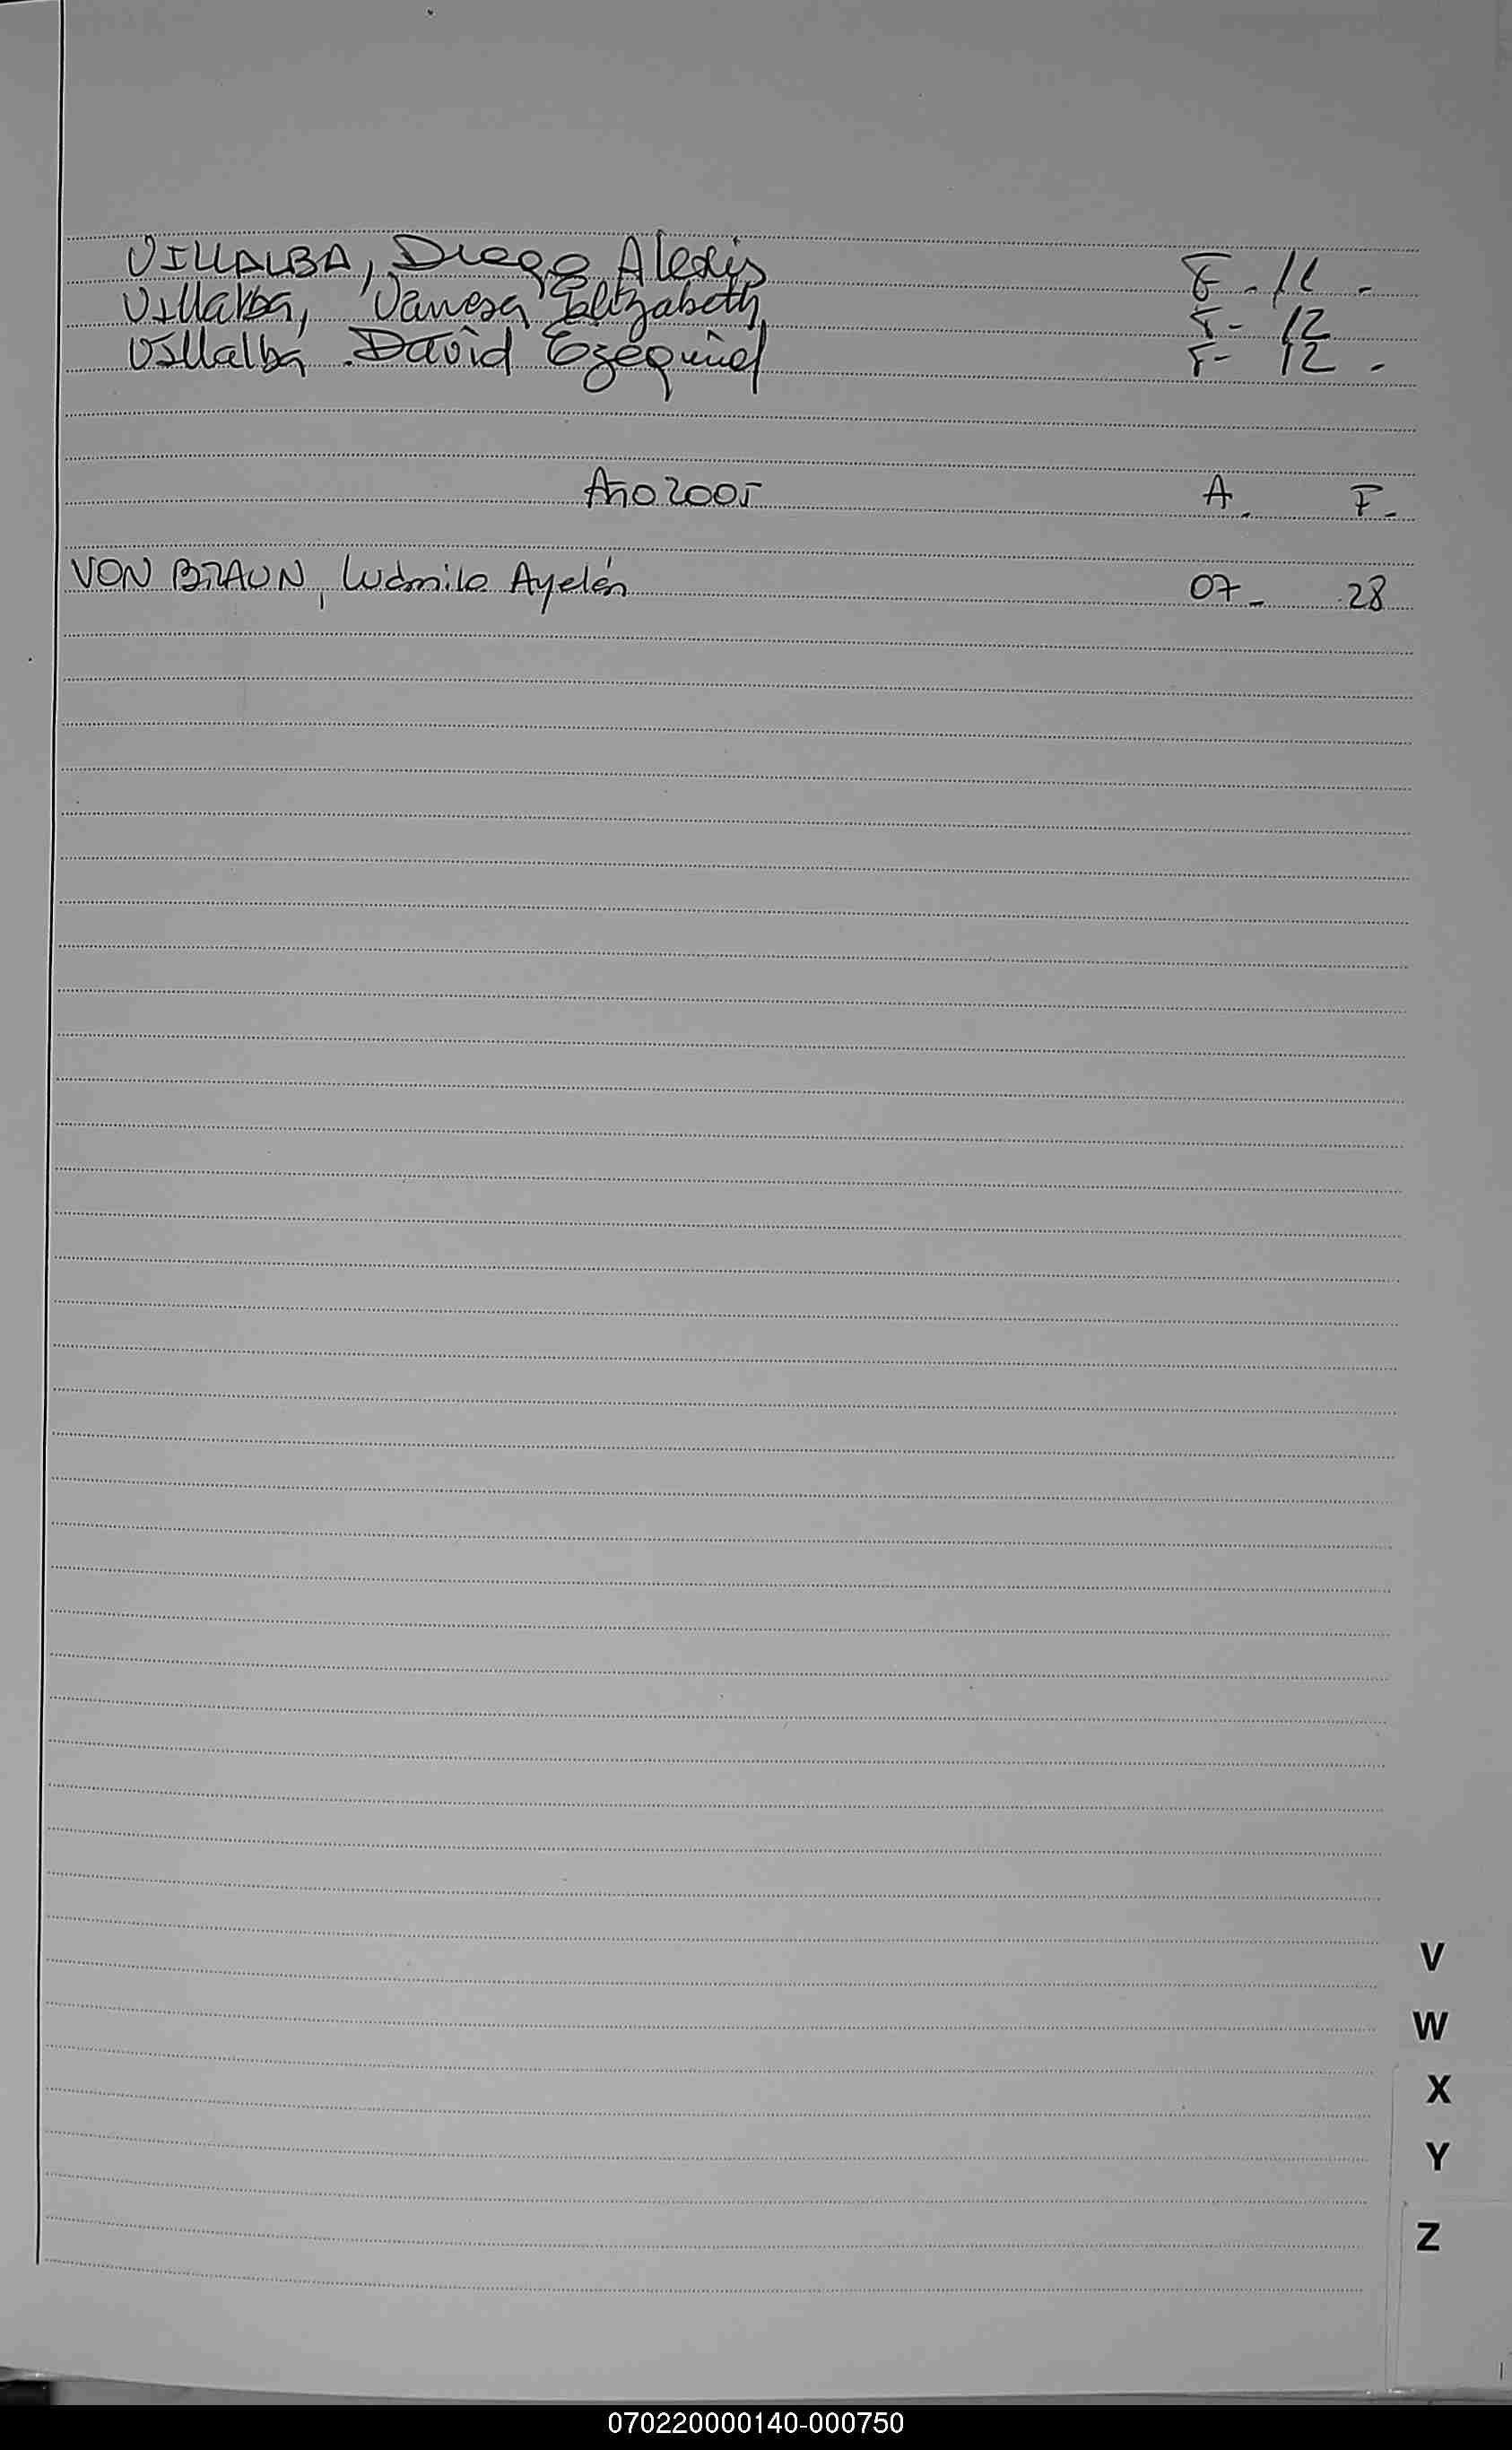 VILLALBA, Diego Alexis F - 11 -
Villalba, Vanesa Elizabeth F - 12
Villalba David Ezequiel F - 12 -
Año 2005 A - F -
VON BRAUN, Ludmila Ayelén 07 - 28
V
W
X
Y
Z
070220000140-000750